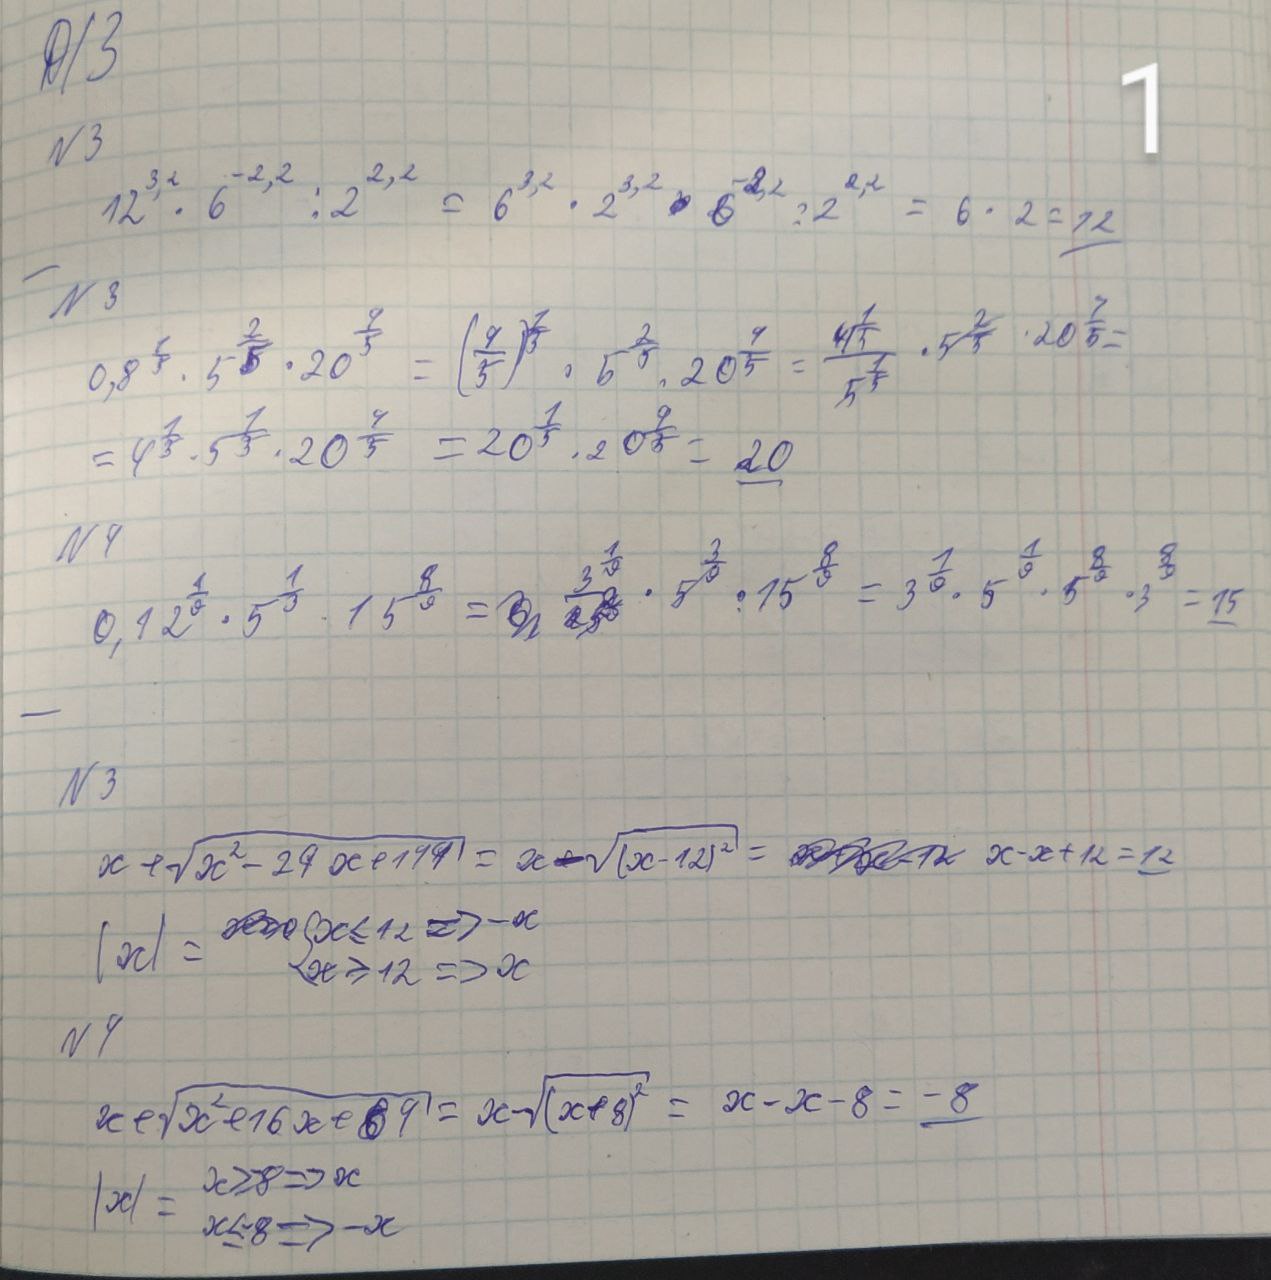 Д/З
1
N3
12^{3,2} · 6^{-2,2} : 2^{2,2} = 6^{3,2} · 2^{3,2} · 6^{-2,2} : 2^{2,2} = 6 · 2 = 12
N3
0,8^{1/5} · 5^{2/5} · 20^{4/5} = (4/5)^{1/5} · 5^{2/5} · 20^{4/5} = 4^{1/5}/5^{1/5} · 5^{2/5} · 20^{4/5} =
= 4^{1/5} · 5^{1/5} · 20^{4/5} = 20^{1/5} · 20^{4/5} = 20
N4
0,12^{1/9} · 5^{1/3} · 15^{8/9} = · 5^{3/9} · 15^{8/9} = 3^{1/9} · 5^{1/9} · 5^{8/9} · 3^{8/9} = 15
N3
x + √(x² - 24x + 144) = x - √(x-12)² = x - x + 12 = 12
|x| = {x ≤ 12 => -x
{x ≥ 12 => x
N4
x + √(x² + 16x + 64) = x - √(x+8)² = x - x - 8 = -8
|x| = x ≥ 8 => x
x ≤ -8 => -x